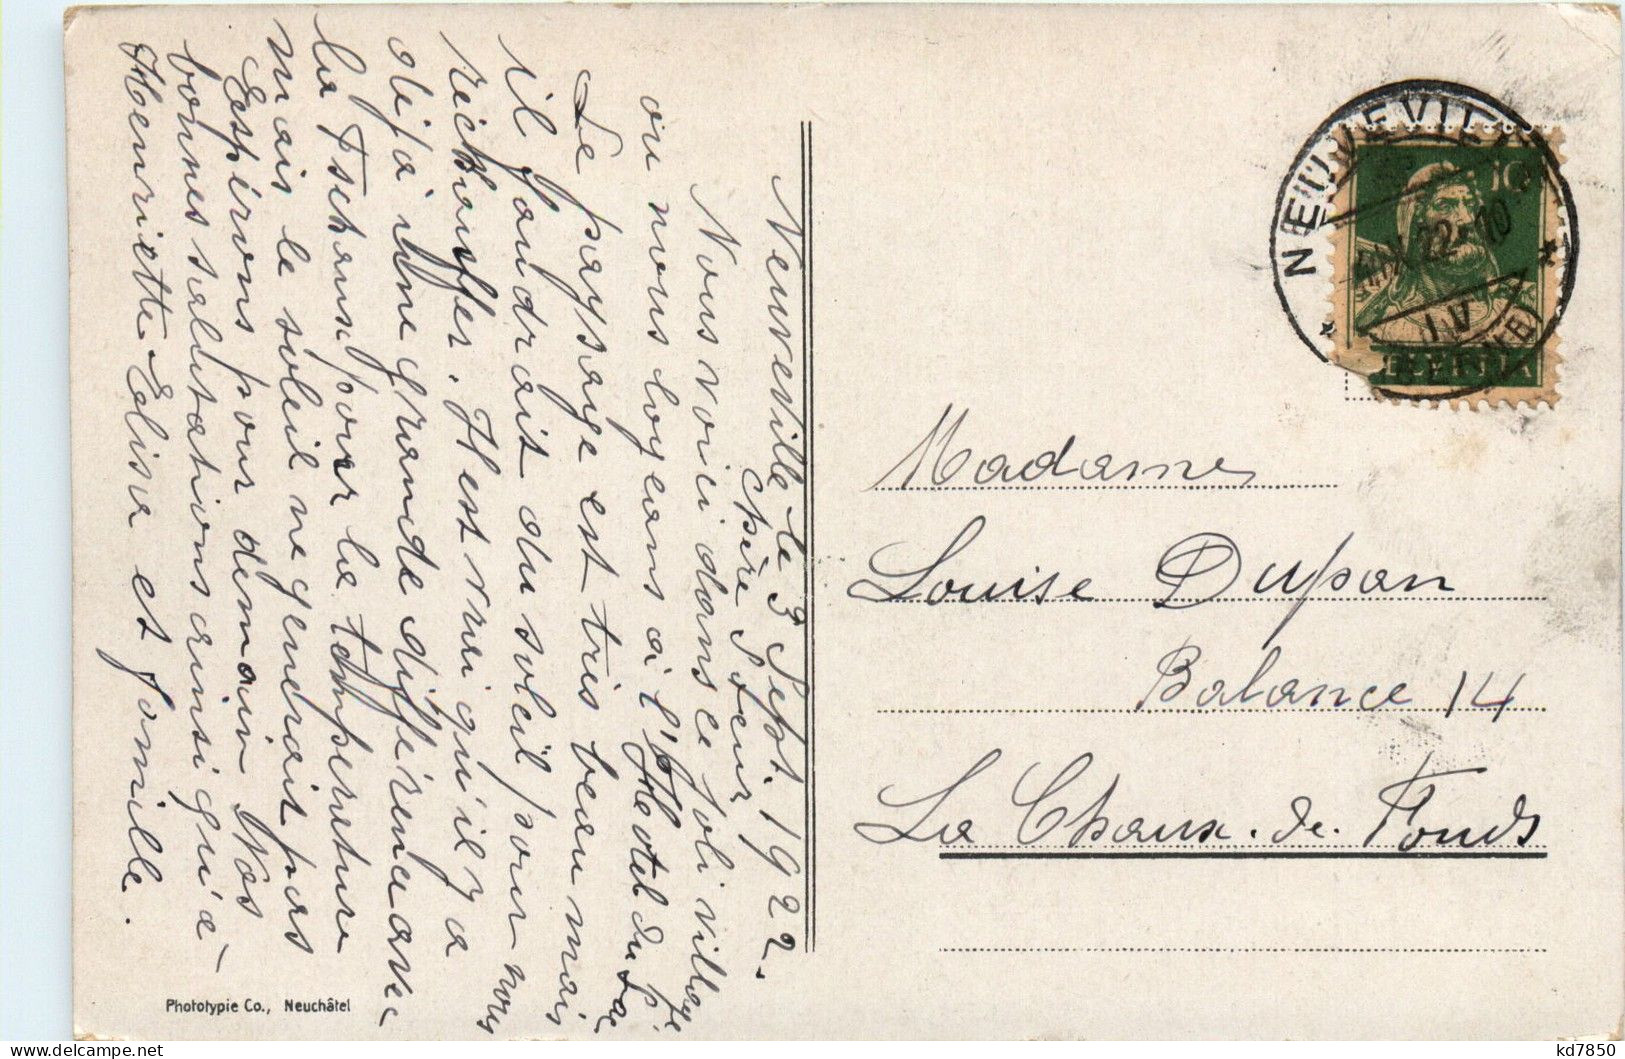 Neuveville le 3 Sept. 1922.
Chère Sœur
Nous voici dans ce joli village
où nous logeons à l'Hotel du Lac
Le paysage est très beau mais
il faudrait du soleil pour nous
réchauffer. Il est vrai qu'il y a
déjà une grande différence avec
la Tschaux pour la température
mais le soleil ne gendrait pas
Espérons pour demain Nos
bonnes salutations ainsi qu'à
Henriette Elisa et famille.
Phototypie Co., Neuchâtel
NEUVEVILLE
22-10
10
HELVETIA
Madame
Louise Dupan
Balance 14
La Chaux-de-Fonds
kd7850